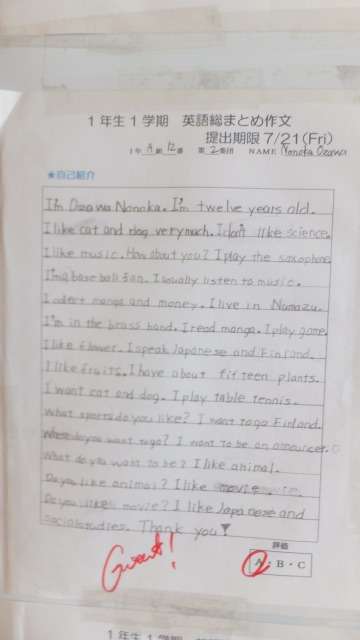 1年生1学期 英語総まとめ作文
提出期限 7/21(Fri)
1年 4組 12番 第2集団 NAME Nonoka Ozawa
★自己紹介
I'm Ozawa Nonoka. I'm twelve years old.
I like cat and dog very much. I don't like science.
I like music. How about you? I play the saxophone
I'm a baseball fan. I usually listen to music.
I collect manga and money. I live in Numazu.
I'm in the brass band. I read manga. I play game.
I like flower. I speak Japanese and Finland.
I like fruits. I have about fifteen plants.
I want cat and dog. I play table tennis.
What sports do you like? I want to go Finland.
Where do you want to go? I want to be an announcer.
What do you want to be? I like animal.
Do you like animal? I like movie.
Do you like movie? I like Japanese and
socialstudies. Thank you
Great!
評価
A・B・C
1年生1学期